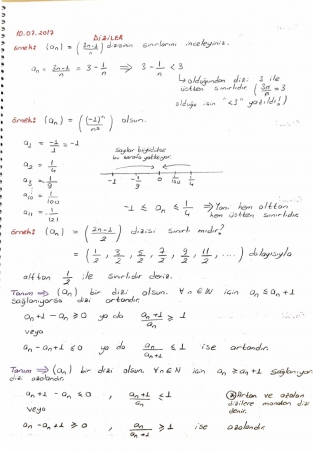 10.07.2017
DİZİLER
Örnek: (an) = (3n-1/n) dizisinin sınırlarını inceleyiniz.
an = 3n-1/n = 3 - 1/n ⇒ 3 - 1/n < 3
↳ olduğundan dizi 3 ile
üstten sınırlıdır (3n/n = 3
olduğu için "<3" yazıldı!)
Örnek: (an) = ((-1)^n/n²) olsun.
a1 = -1/1 = -1
a2 = 1/4
a3 = 1/9
a10 = 1/100
a11 = 1/121
Sayılar büyüdükçe
bu tarafa yaklaşıyor.
-1 -1/9 0 1/100 1/4
-1 ≤ an ≤ 1/4 ⇒ Yani hem alttan
hem üstten sınırlıdır.
Örnek: (an) = (2n-1/2) dizisi sınırlı mıdır?
= (1/2, 3/2, 5/2, 7/2, 9/2, 11/2, ....) dolayısıyla
alttan 1/2 ile sınırlıdır deriz.
Tanım ⇒ (an) bir dizi olsun. ∀n∈N için an ≤ an+1
sağlanıyorsa dizi artandır.
an+1 - an ≥ 0 ya da an+1/an ≥ 1
veya
an - an+1 ≤ 0 ya da an/an+1 ≤ 1 ise artandır.
Tanım ⇒ (an) bir dizi olsun. ∀n∈N için an ≥ an+1 sağlanıyorsa
dizi azalandır.
an+1 - an ≤ 0, an+1/an ≤ 1
veya
an - an+1 ≥ 0, an/an+1 ≥ 1 ise azalandır.
Artan ve azalan
dizilere monoton dizi
denir.